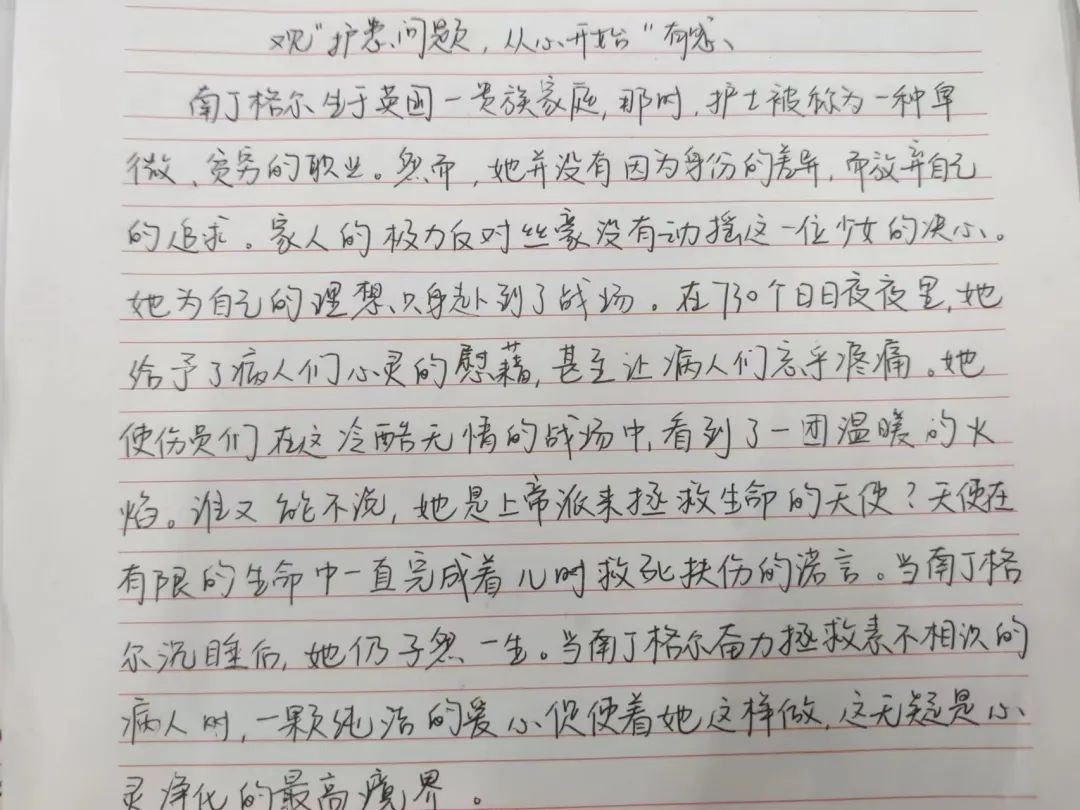 观“护患问题，从心开始”有感、
南丁格尔生于英国一贵族家庭，那时，护士被称为一种卑
微、贫穷的职业。然而，她并没有因为身份的差异，而放弃自己
的追求。家人的极力反对丝豪没有动摇这一位少女的决心。
她为自己的理想只身赴到了战场。在730个日日夜夜里，她
给予了病人们心灵的慰藉，甚至让病人们忘乎疼痛。她
使伤员们在这冷酷无情的战场中，看到了一团温暖的火
焰。谁又能不说，她是上帝派来拯救生命的天使？天使在
有限的生命中一直完成着儿时救死扶伤的诺言。当南丁格
尔沉睡后，她仍孑然一生。当南丁格尔奋力拯救素不相识的
病人时，一颗纯洁的爱心促使着她这样做，这无疑是心
灵净化的最高境界。